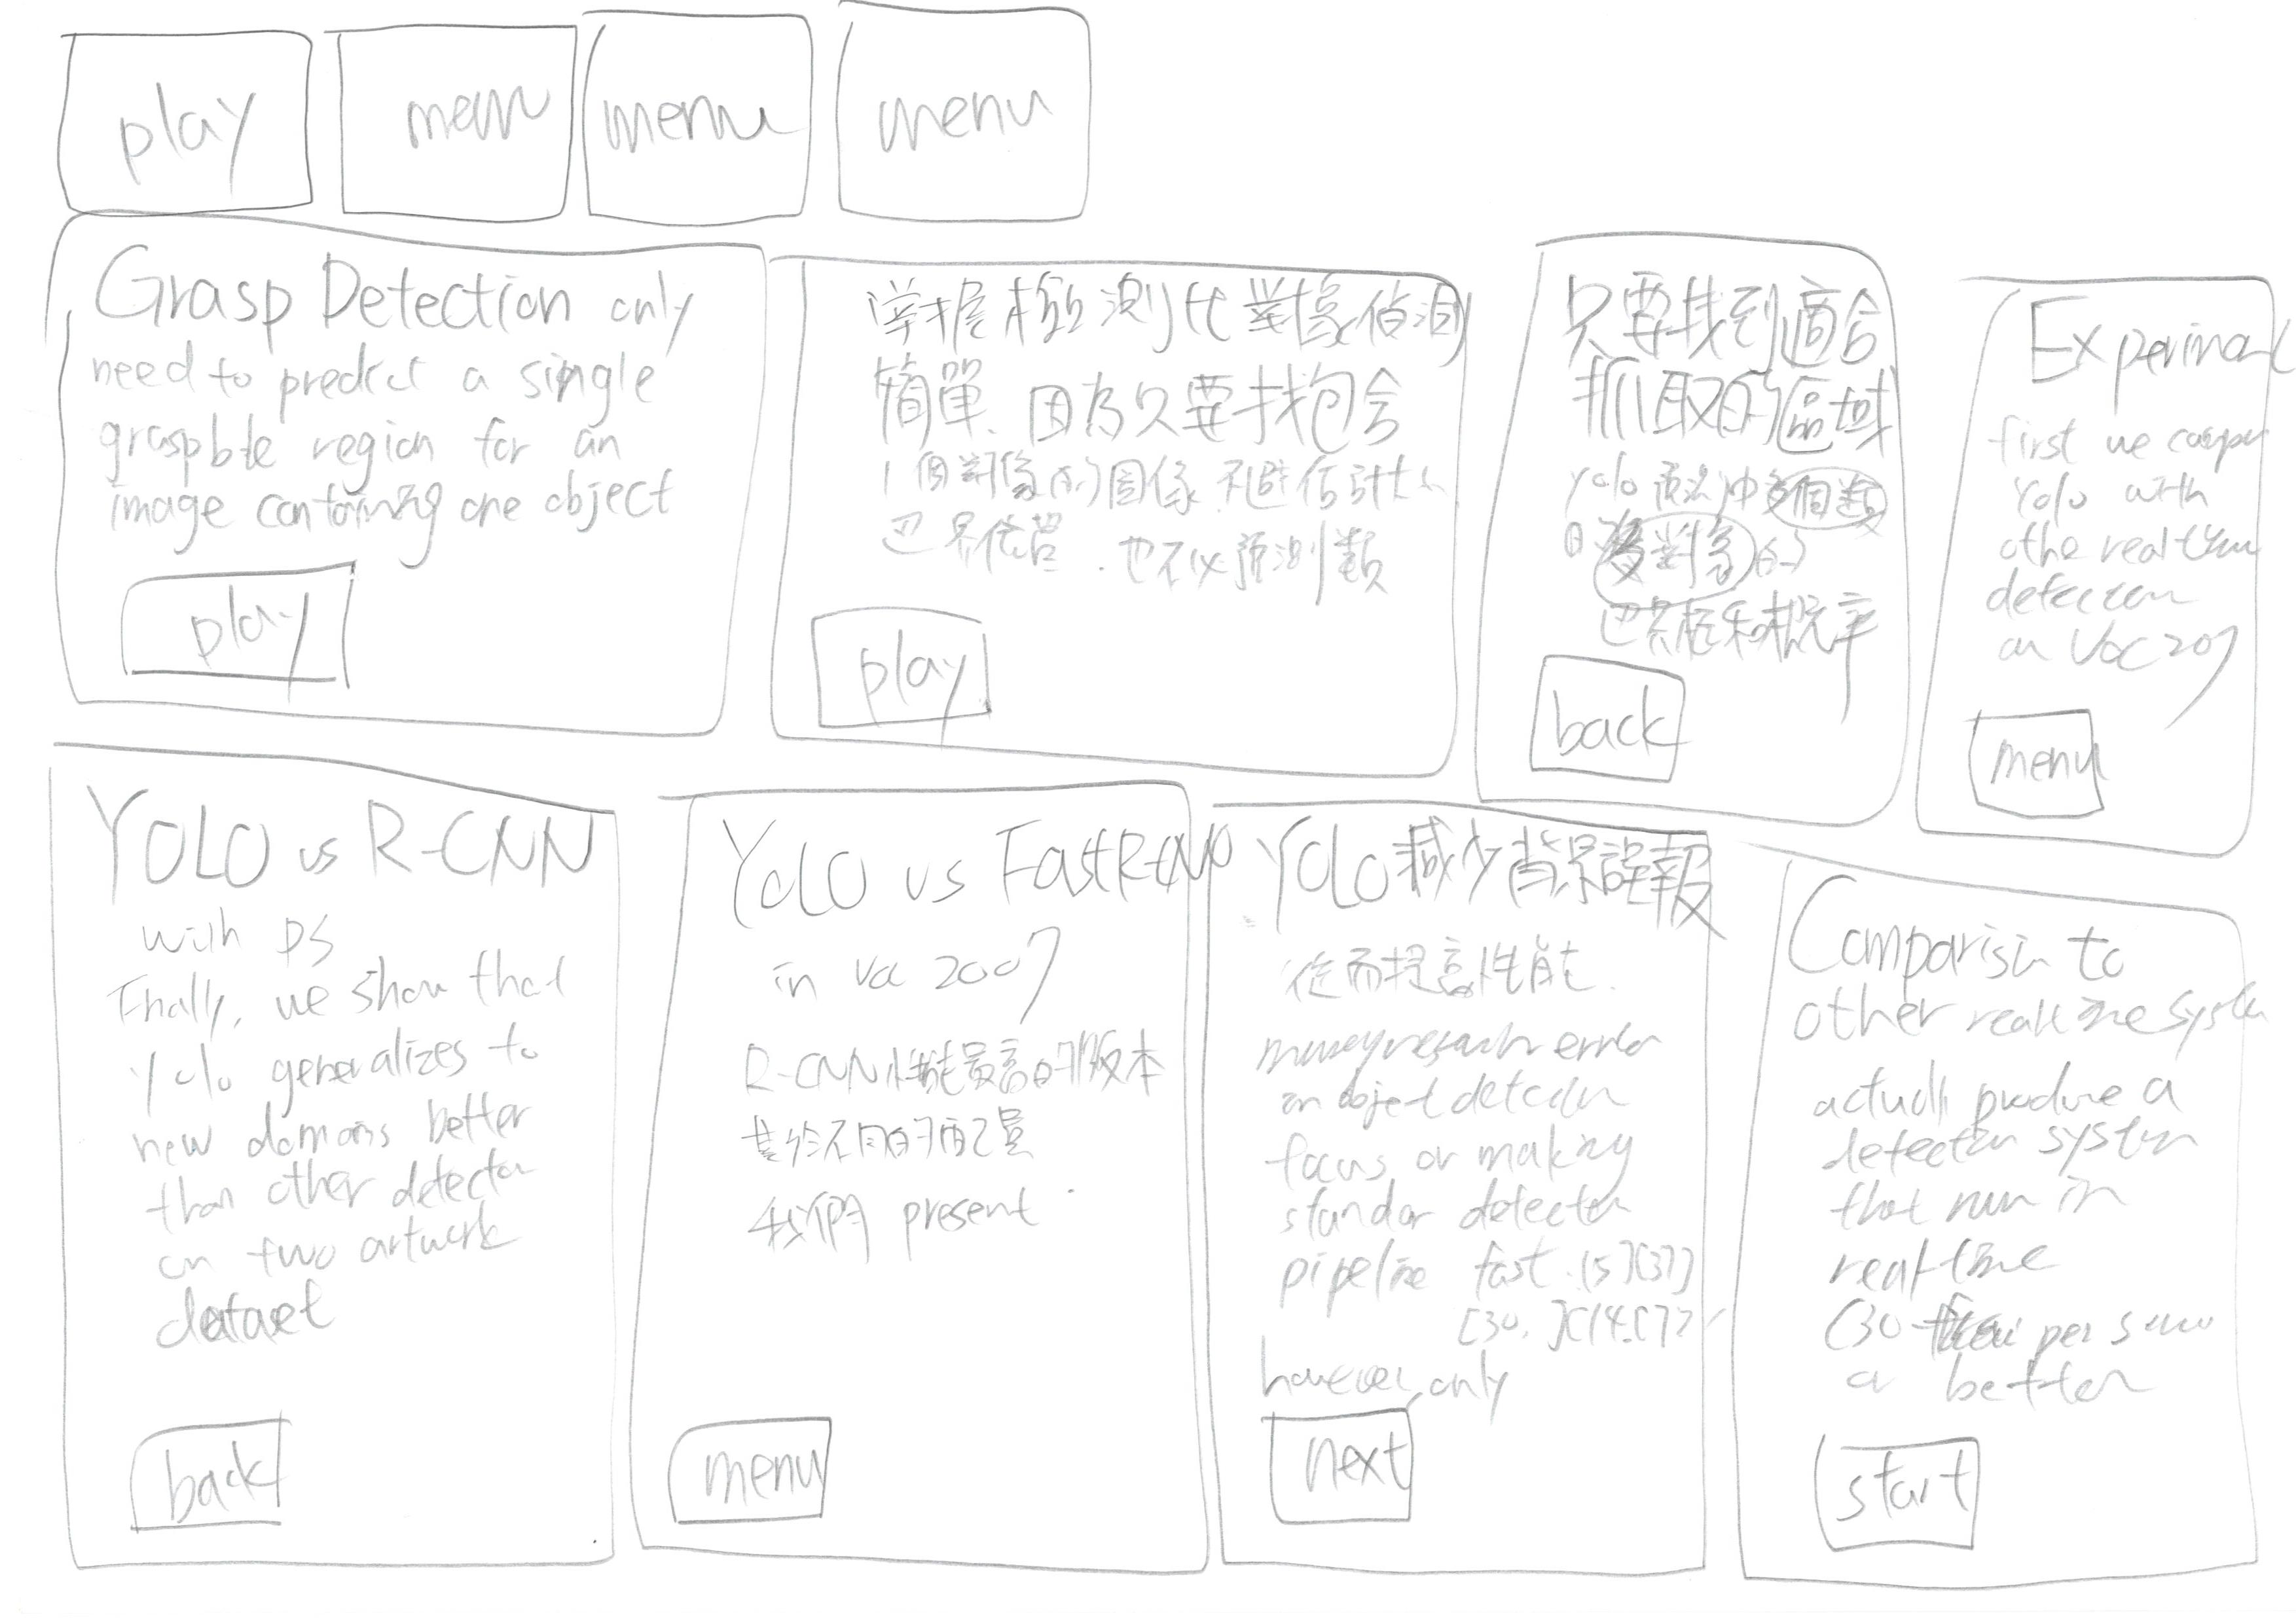 play
menu
menu
menu
Grasp Detection only
need to predict a single
graspble region for an
image containing one object
play
掌握檢測比對象估測
簡單 因為只要找包含
1個對像的圖像 不避估計
也不必預測數
play
只要找到適合
抓取的區域
yolo 多個數
對象
和概率
back
Experiment
first we
Yolo with
othe real time
detection
on Voc 207
menu
YOLO vs R-CNN
with DS
Finally, we show that
Yolo generalizes to
new domains better
than other detector
on two artwork
dataset
back
YOLO vs Fast R-CNN
in Voc 2007
R-CNN性能最高的版本
不同的配量
我們 present
menu
YOLO減少背景誤報
從而提高性能.
error
on object detection
focus or making
standar detector
pipeline fast.[5][37]
however only
next
Comparisin to
other real time system
actually produce a
detection system
that run in
real time
(30 per
or better
start